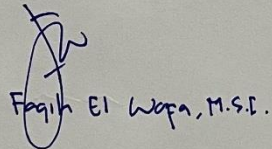 Faqih El Wafa, M.S.I.